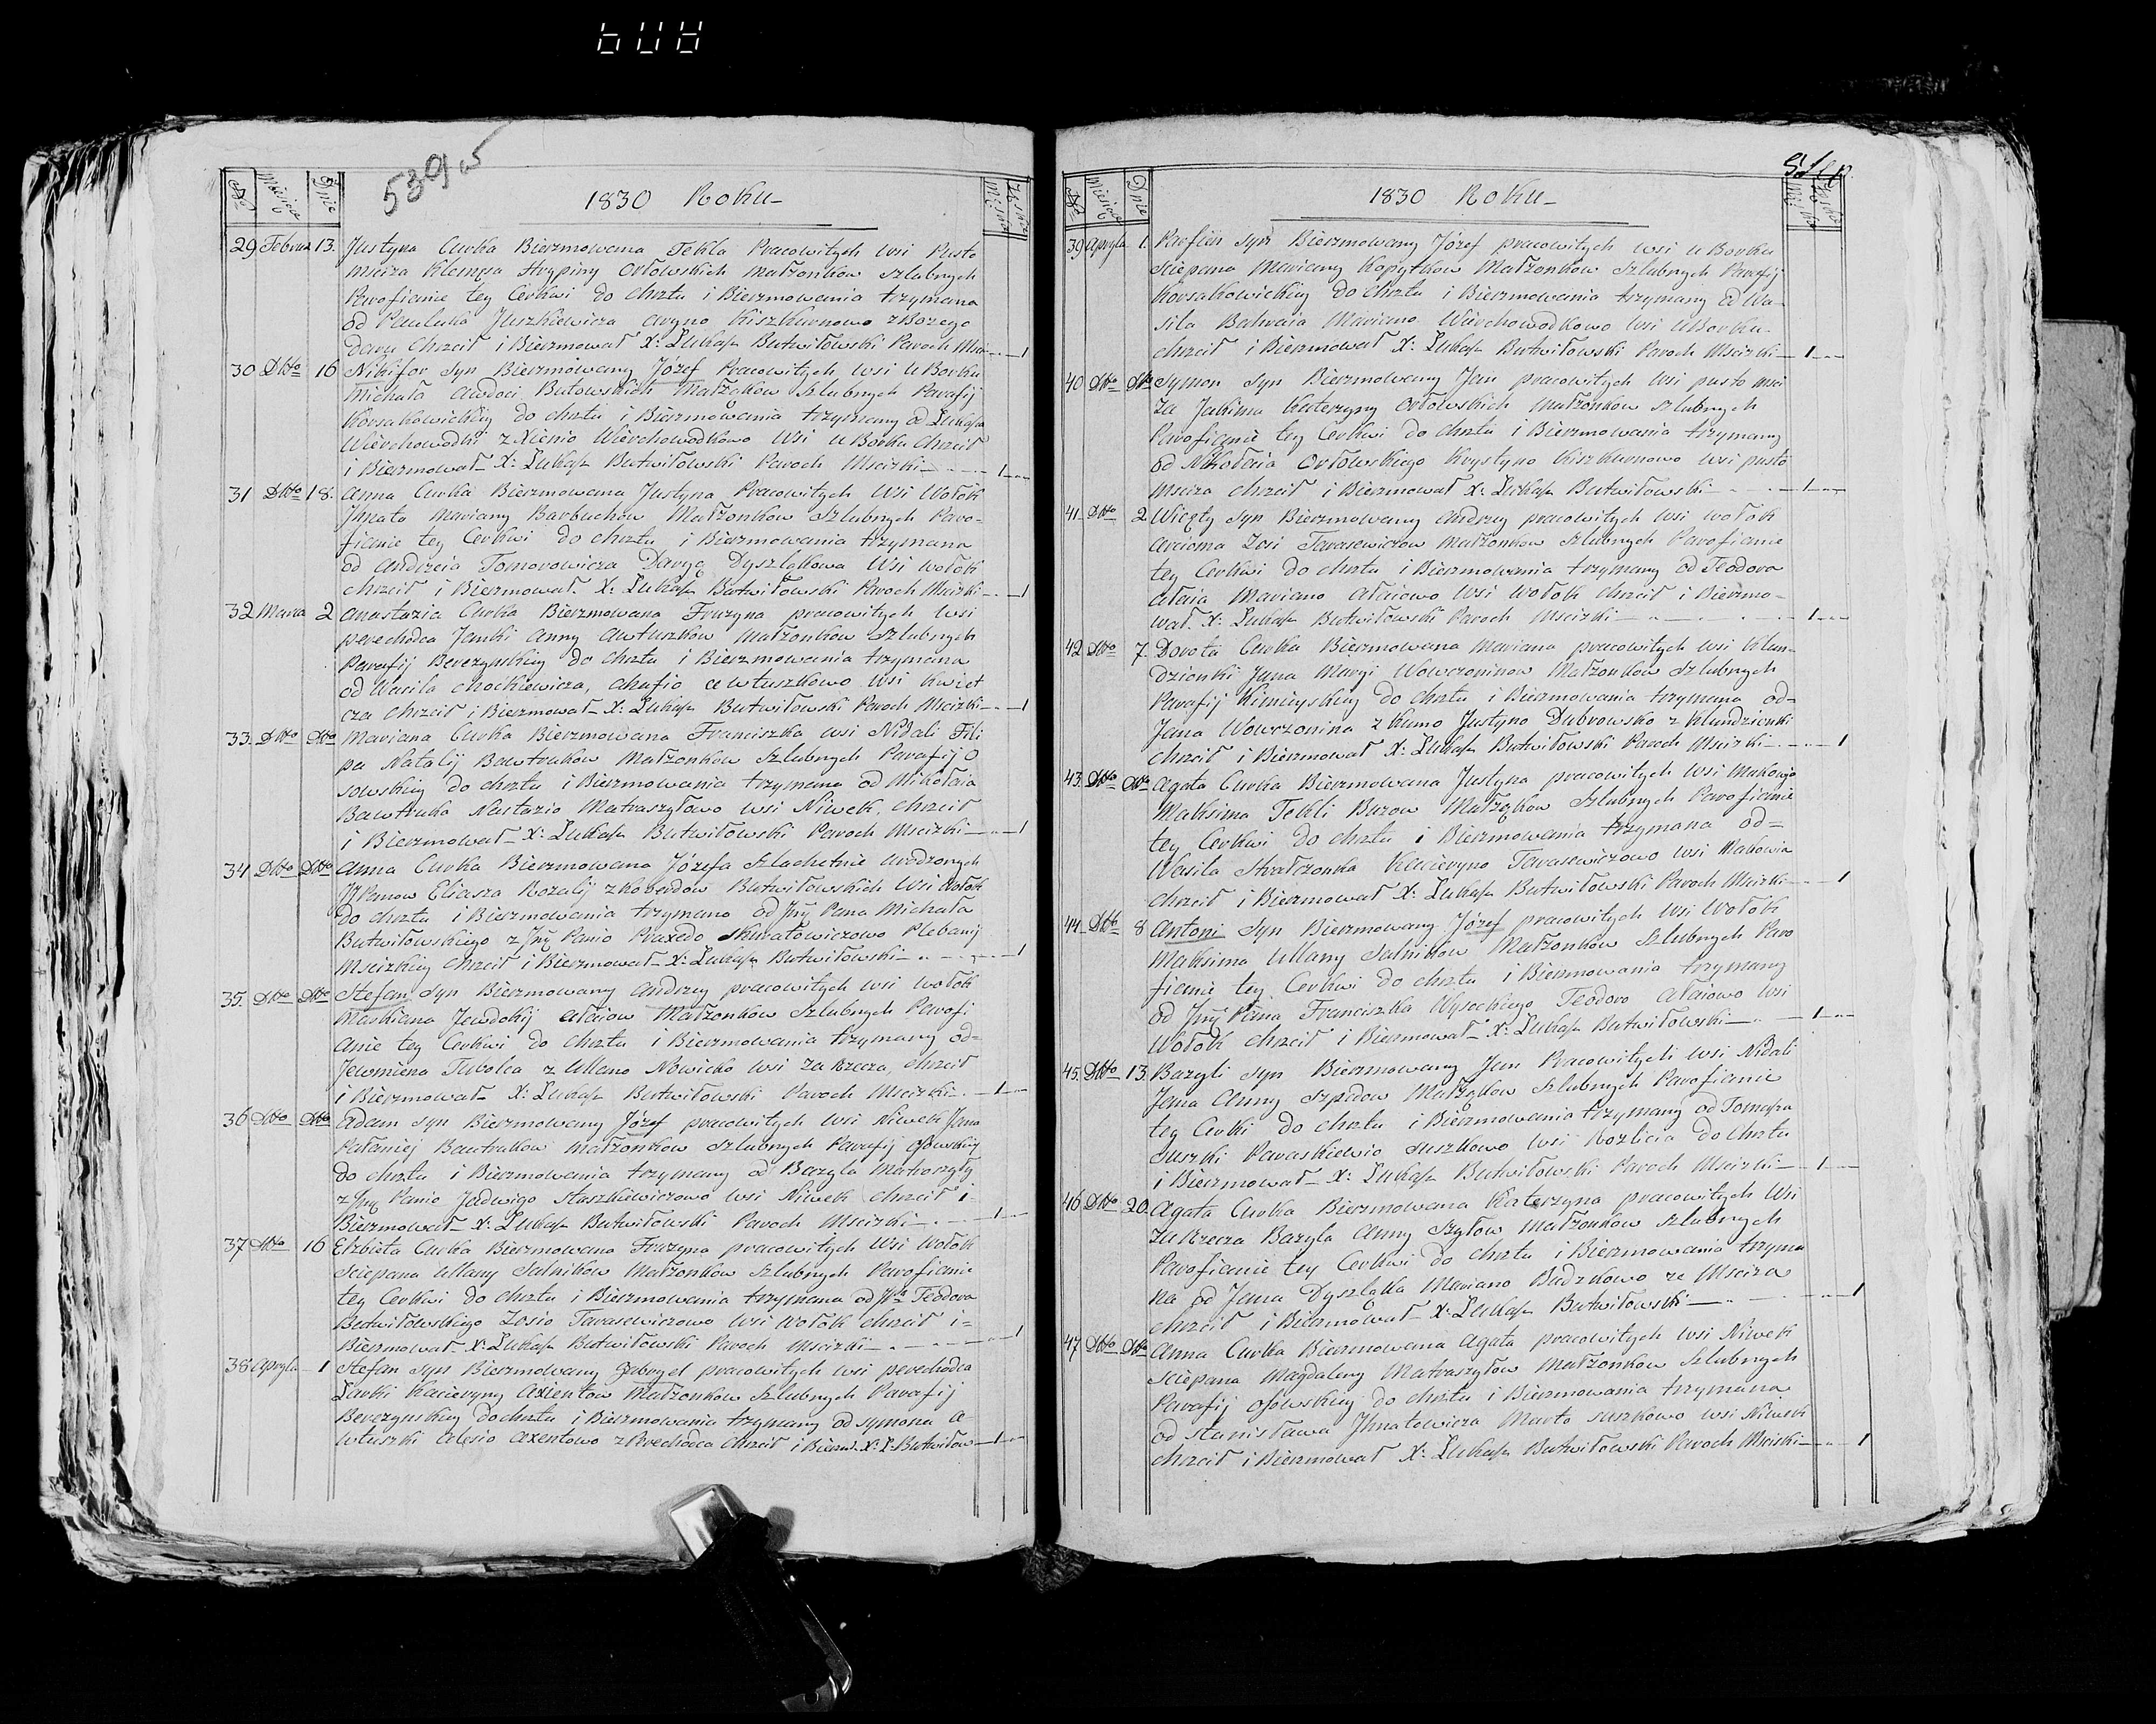 539 v
№ Miesiąc Dnie 1830 Roku Męska Żeńska
29 Februa 13. Justyna Curka Bierzmowana Tekla Pracowitych wsi Pusto
Mściża Klemęsa Ahrypiny Orłowskich Małżonkow Szlubnych
Parofianie tey Cerkwi do chrztu i Bierzmowania trzymana
od Pauluka Juszkiewicza Aryno Kiszkurnowo z Bożego
Daru Chrzcił i Bierzmował X: Łukasz Butwiłowski Paroch Msci 1
30 Dtto 16 Nikifor Syn Bierzmowany Józef Pracowitych wsi u Borku
Michała Awdoci Butowskich Małżąkow Szlubnych Parafij
Korsakowickiey do chrztu i Bierzmowania trzymany od Łukasza
Wierchowodki z Xienio Wierchowodkowo Wsi u Borku Chrzcił
i Bierzmował X: Łukasz Butwiłowski Paroch Mscizki 1
31 Dtto 18. Anna Curka Bierzmowana Justyna Pracowitych Wsi Wołok
Jhnata Maryany Barbuchow Małżonkow Szlubnych Paro-
fianie tey Cerkwi do chrztu i Bierzmowania trzymana
od Andrzeia Tomorowicza Daryą Dyszlakowa Wsi Wołok
chrzcił i Bierzmował X: Łukasz Butwiłowski Paroch Mscizki 1
32 Marca 2 Anastazia Curka Bierzmowana Fruzyna pracowitych wsi
perechodca Janki Anny Awtuszkow Małżonkow Szlubnych
Parafij Berezynskiey do Chrztu i Bierzmowania trzymana
od Wasila Chockiewicza, Ahafio Awtuszkowo Wsi Kwiet
cza Chrzcił i Bierzmował X: Łukasz Butwiłowski Paroch Mscizki 1
33. Dtto Dtto Mariana Curka Bierzmowana Franciszka wsi Nidali Fili
pa Natalij Bawtrukow Małżonkow Szlubnych Parafij O
sowskiey do chrztu i Bierzmowania trzymana od Mikołaia
Bawtruka Nastazio Matraszyłowo wsi Niwek, chrzcił
i Bierzmował X: Łukasz Butwiłowski Paroch Mscizki 1
34 Dtto Dtto Anna Curka Bierzmowana Józefa Szlachetnie urodzonych
JJ Panow Eliasza Rozalij z Koberdow Butwiłowskich Wsi Wołok
do chrztu i Bierzmowania trzymano od Jmć Pana Michała
Butwiłowskiego z Jmć Panio Praxedo Skuratowiczowo Plebanij
Mscizkiey chrzcił i Bierzmował X: Łukasz Butwiłowski 1
35. Dtto Dtto Stefan Syn Bierzmowany Andrzey pracowitych wsi Wołok
Markiana Jewdokij Ataiow Małżonkow Szlubnych Parofi
anie tey Cerkwi do Chrztu i Bierzmowania trzymany od-
Jeromiena Tubolca z Ullano Nowicko Wsi Za Rzecza, chrzcił
i Bierzmował X: Łukasz Butwiłowski Paroch Mscizki 1
36 Dtto Dtto Adam Syn Bierzmowany Józef pracowitych wsi Niwek Jana
Pałaniej Bawtrukow Małżonkow Szlubnych Parafij Osowskiey
do chrztu i Bierzmowania trzymany od Bazyla Matraszyły
z Jmć Panio Jadwigo Staszkiewiczowo wsi Niwek Chrzcił i-
Bierzmował X: Łukasz Butwiłowski Paroch Mscizki 1
37 Dtto 16 Elzbieta Curka Bierzmowana Fruzyna pracowitych Wsi Wołok
Sciepana Ullany Salnikow Małżonkow Szlubnych Parofianie
tey Cerkwi do chrztu i Bierzmowania trzymana od JPa Teodora
Butwiłowskiego Zosio Tarasewiczowo wsi Wołok chrzcił i-
Bierzmował X: Łukasz Butwiłowski Paroch Mscizki 1
38 Apryla 1 Stefan Syn Bierzmowany Gabryel pracowitych wsi perechodca
Ławki Kacieryny Axientow Małżonkow Szlubnych Parafij
Berezynskiey do chrztu i Bierzmowania trzymany od Symona A-
wtuszki Alesio Axentowo z Perechodca Chrzcił i Bierzm. X: Ł: Butwiłow 1
№ Miesiąc Dnie 1830 Roku Męska Żeńska
39 Apryla 1. Parfien Syn Bierzmowany Józef pracowitych wsi u Borku
Sciepana Mariany Kopytkow Małżonkow Szlubnych Parafij
Korsakowickiey do chrztu i Bierzmowania trzymany od Wa-
sila Bahraia Mariano Wierchowodkowo wsi u Borku-
chrzcił i Bierzmował X: Łukasz Butwiłowski Paroch Mscizki 1
40 Dtto Dtto Symon Syn Bierzmowany Jan pracowitych wsi pusto Msci
Za Jakima Katerzyny Orłowskich Małżonkow Szlubnych
Parofianie tey Cerkwi do chrztu i Bierzmowania trzymany
od Nikołaia Orłowskiego Krystyno Kiszkurnowo wsi pusto
Msciza chrzcił i Bierzmował X: Łukasz Butwiłowski 1
41 Dtto 2 Wicęty Syn Bierzmowany Andrzey pracowitych wsi Wołok
Arcioma Zosi Tarasewiczow Małżonkow Szlubnych Parofianie
tey Cerkwi do chrztu i Bierzmowania trzymany od Teodora
Ataia Mariano Ataiowo wsi Wołok chrzcił i Bierzmo-
wał X: Łukasz Butwiłowski Paroch Mscizki 1
42 Dtto 7. Dorota Curka Bierzmowana Mariana pracowitych wsi Klun-
dzionki Jana Maryi Wowczoninow Małżonkow Szlubnych
Parafij Kimiyskiey do chrztu i Bierzmowania trzymana od-
Jana Wowczonina z Kumo Justyno Dubrowsko z Klundzionki
Chrzcił i Bierzmował X: Łukasz Butwiłowski Paroch Mscizki 1
43. Dtto Dtto Agata Curka Bierzmowana Justyna pracowitych wsi Makowja
Maksima Tekli Burow Małżąkow Szlubnych Parofianie
tey Cerkwi do chrztu i Bierzmowania trzymana od-
Wasila Strałczonka Kacieryno Tarasewiczowo wsi Makowia
chrzcił i Bierzmował X: Łukasz Butwiłowski Paroch Mscizki 1
44 Dtto 8 Antoni Syn Bierzmowany Józef pracowitych wsi Wołok
Maksima Ullany Salnikow Małżonkow Szlubnych Paro
fianie tey Cerkwi do chrztu i Bierzmowania trzymany
od Jmć Pana Franciszka Wysockiego Teodoro Ataiowo wsi
Wołok chrzcił i Bierzmował X: Łukasz Butwiłowski 1
45. Dtto 13. Bazyli Syn Bierzmowany Jan Pracowitych wsi Nidali
Jana Anny Szpedow Małżąkow Szlubnych Parofianie
tey Cerki do chrztu i Bierzmowania trzymany od Tomasza
Suszki Paraskiewio Suszkowo wsi Rozlicia do Chrztu
i Bierzmował X: Łukasz Butwiłowski Paroch Mscizki 1
46 Dtto 20. Agata Curka Bierzmowana Katerzyna pracowitych Wsi
Za Rzecza Bazyla Anny Szyłow Małżonkow Szlubnych
Parofianie tey Cerkwi do chrztu i Bierzmowania trzyma
na od Jana Dyszlaka Mariano Budzkowo ze Msciza
chrzcił i Bierzmował X: Łukasz Butwiłowski 1
47 Dtto Dtto Anna Curka Bierzmowana Agata pracowitych wsi Niwek
Sciepana Magdaleny Matraszyłow Małżonkow Szlubnych
Parafij Osowskiey do chrztu i Bierzmowania trzymana
od Stanisława Jhnatowicza Marto Suszkowo wsi Niwek
chrzcił i Bierzmował X: Łukasz Butwiłowski Paroch Msciski 1